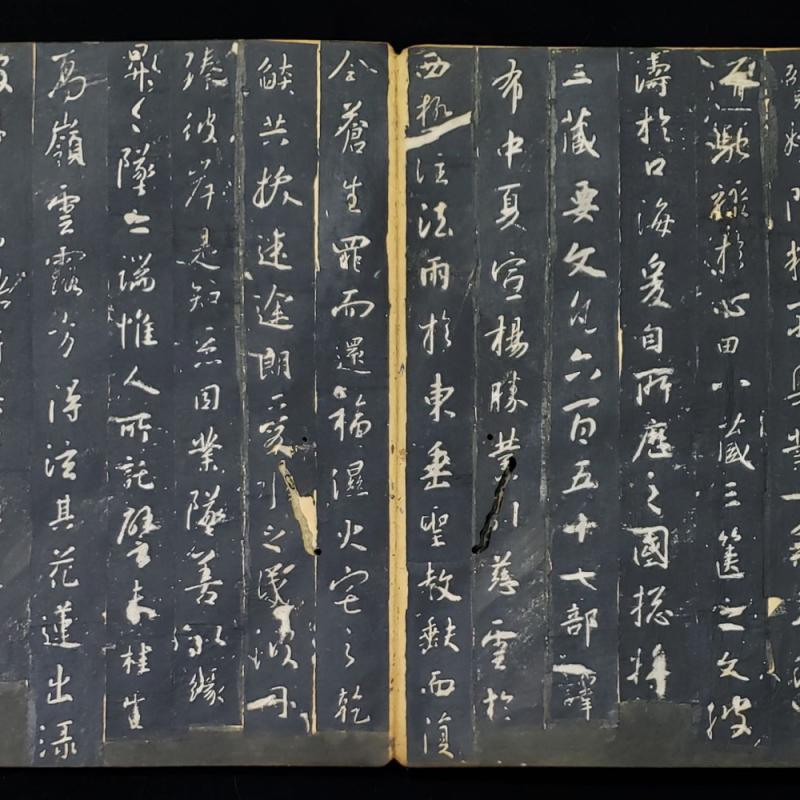 妙門精窮奧業一乘五
道馳驟於心田八藏三篋之文波
濤於口海爰自所歷之國揔將
三藏要文凡六百五十七部譯
布中夏宣揚勝業引慈雲於
西極注法雨於東垂聖教缺而復
全蒼生罪而還福濕火宅之乾
燄共拔迷途朗愛水之昏波同
臻彼岸是知惡因業墜善以緣
昇〻墜之端惟人所託譬夫桂生
高嶺雲露方得泫其花蓮出淥